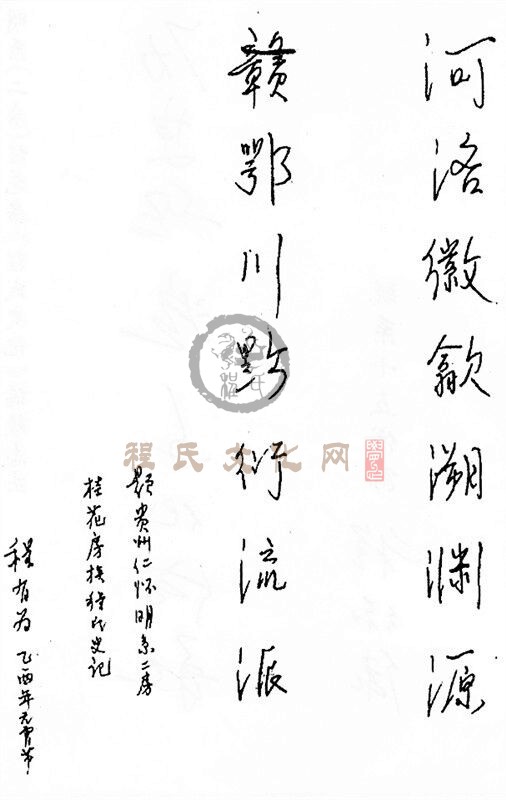 河洛徽歙溯渊源
赣鄂川黔衍流派
题贵州仁怀明系二房
桂花房族程氏史记
程有为 乙酉年元宵节
程氏文化网